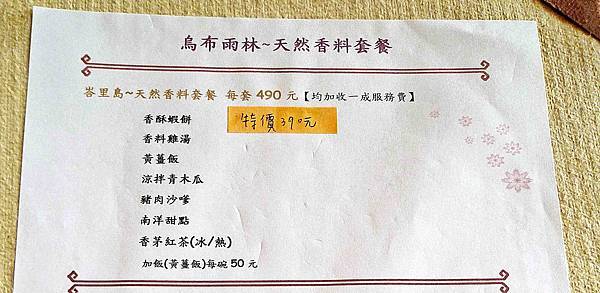 烏布雨林~天然香料套餐
峇里島~天然香料套餐 每套 490 元【均加收一成服務費】
香酥蝦餅
特價390元
香料雞湯
黃薑飯
涼拌青木瓜
豬肉沙嗲
南洋甜點
香茅紅茶(冰/熱)
加飯(黃薑飯)每碗 50 元